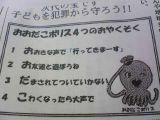 子どもを犯罪から守ろう!!
おおだこポリス4つのおやくそく
1 おおきな声で「行ってきまーす」
2 お友達と遊ぼうね
3 だまされてついていかない
4 こわくなったら大声で